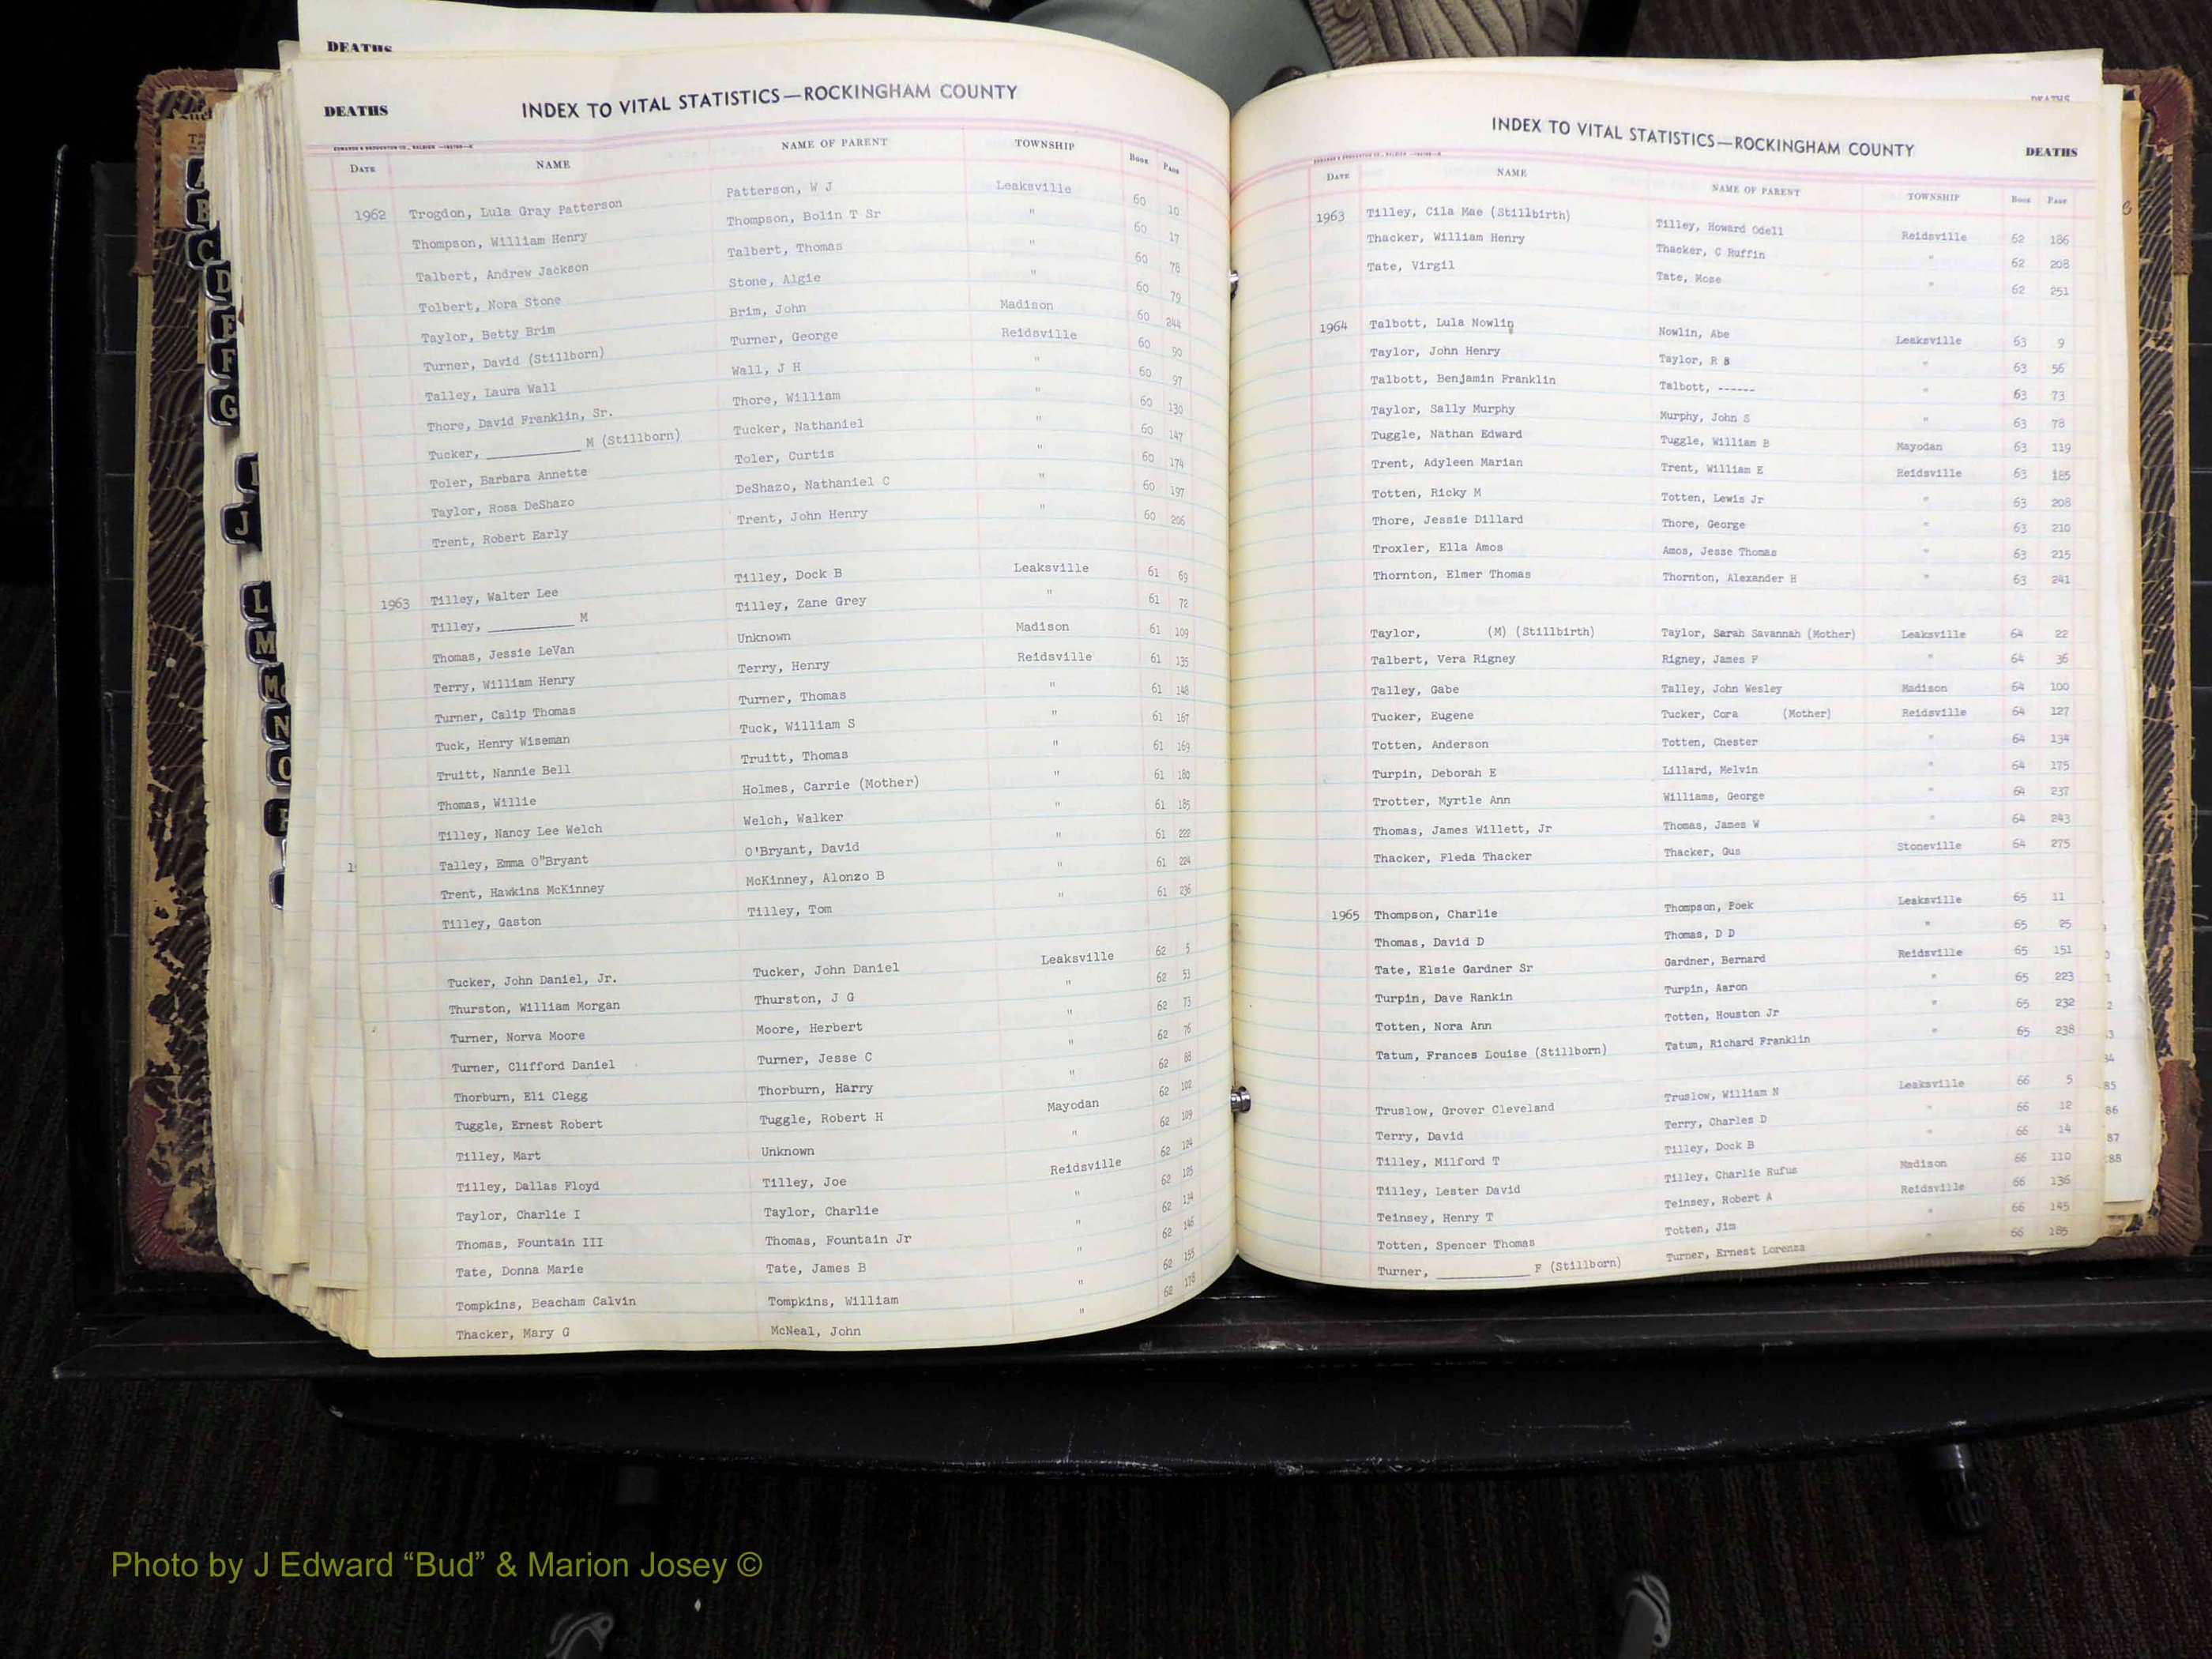 DEATHS
DEATHS
INDEX TO VITAL STATISTICS—ROCKINGHAM COUNTY
DATE NAME NAME OF PARENT TOWNSHIP BOOK PAGE
1962 Trogdon, Lula Gray Patterson Patterson, W J Leaksville 60 10
Thompson, William Henry Thompson, Bolin T Sr " 60 17
Talbert, Andrew Jackson Talbert, Thomas " 60 78
Tolbert, Nora Stone Stone, Algie " 60 79
Taylor, Betty Brim Brim, John Madison 60 244
Turner, David (Stillborn) Turner, George Reidsville 60 90
Talley, Laura Wall Wall, J H " 60 97
Thore, David Franklin, Sr. Thore, William " 60 130
Tucker, ____________ M (Stillborn) Tucker, Nathaniel " 60 147
Toler, Barbara Annette Toler, Curtis " 60 174
Taylor, Rosa DeShazo DeShazo, Nathaniel C " 60 197
Trent, Robert Early Trent, John Henry " 60 206
1963 Tilley, Walter Lee Tilley, Dock B Leaksville 61 69
Tilley, ___________ M Tilley, Zane Grey " 61 72
Thomas, Jessie LeVan Unknown Madison 61 109
Terry, William Henry Terry, Henry Reidsville 61 135
Turner, Calip Thomas Turner, Thomas " 61 148
Tuck, Henry Wiseman Tuck, William S " 61 167
Truitt, Nannie Bell Truitt, Thomas " 61 169
Thomas, Willie Holmes, Carrie (Mother) " 61 180
Tilley, Nancy Lee Welch Welch, Walker " 61 185
Talley, Emma O"Bryant O'Bryant, David " 61 222
Trent, Hawkins McKinney McKinney, Alonzo B " 61 224
Tilley, Gaston Tilley, Tom " 61 236
Tucker, John Daniel, Jr. Tucker, John Daniel Leaksville 62 5
Thurston, William Morgan Thurston, J G " 62 53
Turner, Norva Moore Moore, Herbert " 62 73
Turner, Clifford Daniel Turner, Jesse C " 62 76
Thorburn, Eli Clegg Thorburn, Harry " 62 88
Tuggle, Ernest Robert Tuggle, Robert H Mayodan 62 102
Tilley, Mart Unknown " 62 109
Tilley, Dallas Floyd Tilley, Joe Reidsville 62 124
Taylor, Charlie I Taylor, Charlie " 62 125
Thomas, Fountain III Thomas, Fountain Jr " 62 134
Tate, Donna Marie Tate, James B " 62 146
Tompkins, Beacham Calvin Tompkins, William " 62 155
Thacker, Mary G McNeal, John " 62 178
INDEX TO VITAL STATISTICS—ROCKINGHAM COUNTY
DEATHS
DATE NAME NAME OF PARENT TOWNSHIP BOOK PAGE
1963 Tilley, Cila Mae (Stillbirth) Tilley, Howard Odell Reidsville 62 186
Thacker, William Henry Thacker, C Ruffin " 62 208
Tate, Virgil Tate, Mose " 62 251
1964 Talbott, Lula Nowlin Nowlin, Abe Leaksville 63 9
Taylor, John Henry Taylor, R S " 63 56
Talbott, Benjamin Franklin Talbott, ------ " 63 73
Taylor, Sally Murphy Murphy, John S " 63 78
Tuggle, Nathan Edward Tuggle, William B Mayodan 63 119
Trent, Adyleen Marian Trent, William E Reidsville 63 185
Totten, Ricky M Totten, Lewis Jr " 63 208
Thore, Jessie Dillard Thore, George " 63 210
Troxler, Ella Amos Amos, Jesse Thomas " 63 215
Thornton, Elmer Thomas Thornton, Alexander H " 63 241
Taylor, (M) (Stillbirth) Taylor, Sarah Savannah (Mother) Leaksville 64 22
Talbert, Vera Rigney Rigney, James F " 64 36
Talley, Gabe Talley, John Wesley Madison 64 100
Tucker, Eugene Tucker, Cora (Mother) Reidsville 64 127
Totten, Anderson Totten, Chester " 64 134
Turpin, Deborah E Lillard, Melvin " 64 175
Trotter, Myrtle Ann Williams, George " 64 237
Thomas, James Willett, Jr Thomas, James W " 64 243
Thacker, Fleda Thacker Thacker, Gus Stoneville 64 275
1965 Thompson, Charlie Thompson, Poek Leaksville 65 11
Thomas, David D Thomas, D D " 65 25
Tate, Elsie Gardner Sr Gardner, Bernard Reidsville 65 151
Turpin, Dave Rankin Turpin, Aaron " 65 223
Totten, Nora Ann Totten, Houston Jr " 65 232
Tatum, Frances Louise (Stillborn) Tatum, Richard Franklin " 65 238
Truslow, Grover Cleveland Truslow, William N Leaksville 66 5
Terry, David Terry, Charles D " 66 12
Tilley, Milford T Tilley, Dock B " 66 14
Tilley, Lester David Tilley, Charlie Rufus Madison 66 110
Teinsey, Henry T Teinsey, Robert A Reidsville 66 136
Totten, Spencer Thomas Totten, Jim " 66 145
Turner, ____________ F (Stillborn) Turner, Ernest Lorenza " 66 185
A
B
C
D
E
F
G
J
L
M
Mc
N
O
85
86
87
88
Photo by J Edward “Bud” & Marion Josey ©